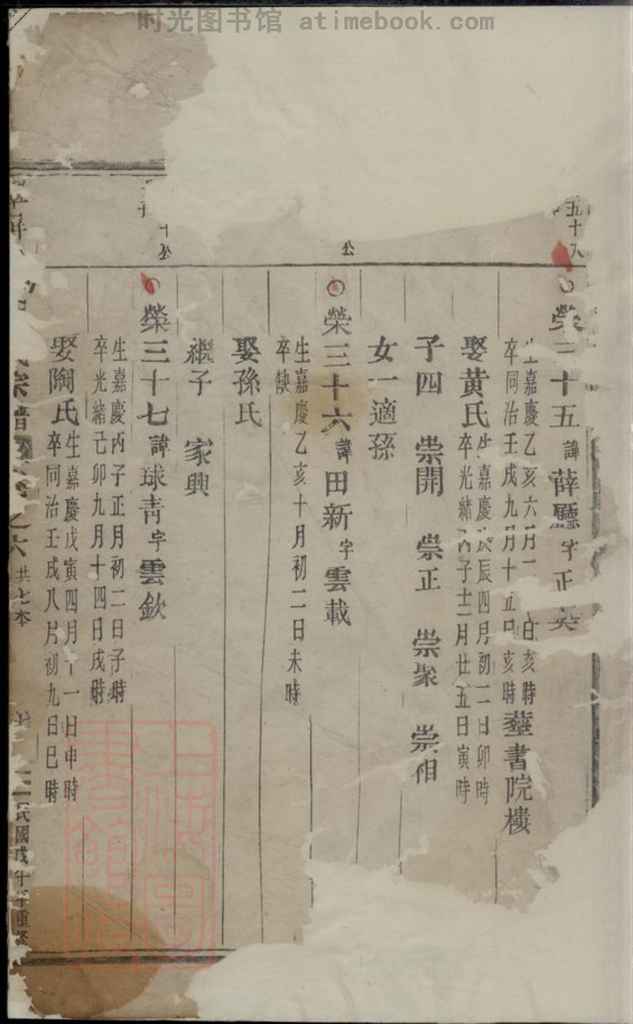 时光图书馆 atimebook.com
五十八
公
公
榮三十五 諱 薛廳 字 正
生嘉慶乙亥六月 亥時
卒同治壬戌九月十五日亥時 塟書院樓
娶黄氏 生嘉慶戊辰四月初二日卯時
卒光緒丙子十二月廿五日寅時
子四 崇開 崇正 崇聚 崇相
女一適孫
榮三十六 諱 田新 字 雲載
生嘉慶乙亥十月初二日未時
卒缺
娶孫氏
繼子 家興
榮三十七 諱 球青 字 雲欽
生嘉慶丙子正月初二日子時
卒光緒己卯九月十四日戌時
娶陶氏 生嘉慶戊寅四月十一日申時
卒同治壬戌八月初九日巳時
宗譜 卷之六 共七本
民國戊十年重修